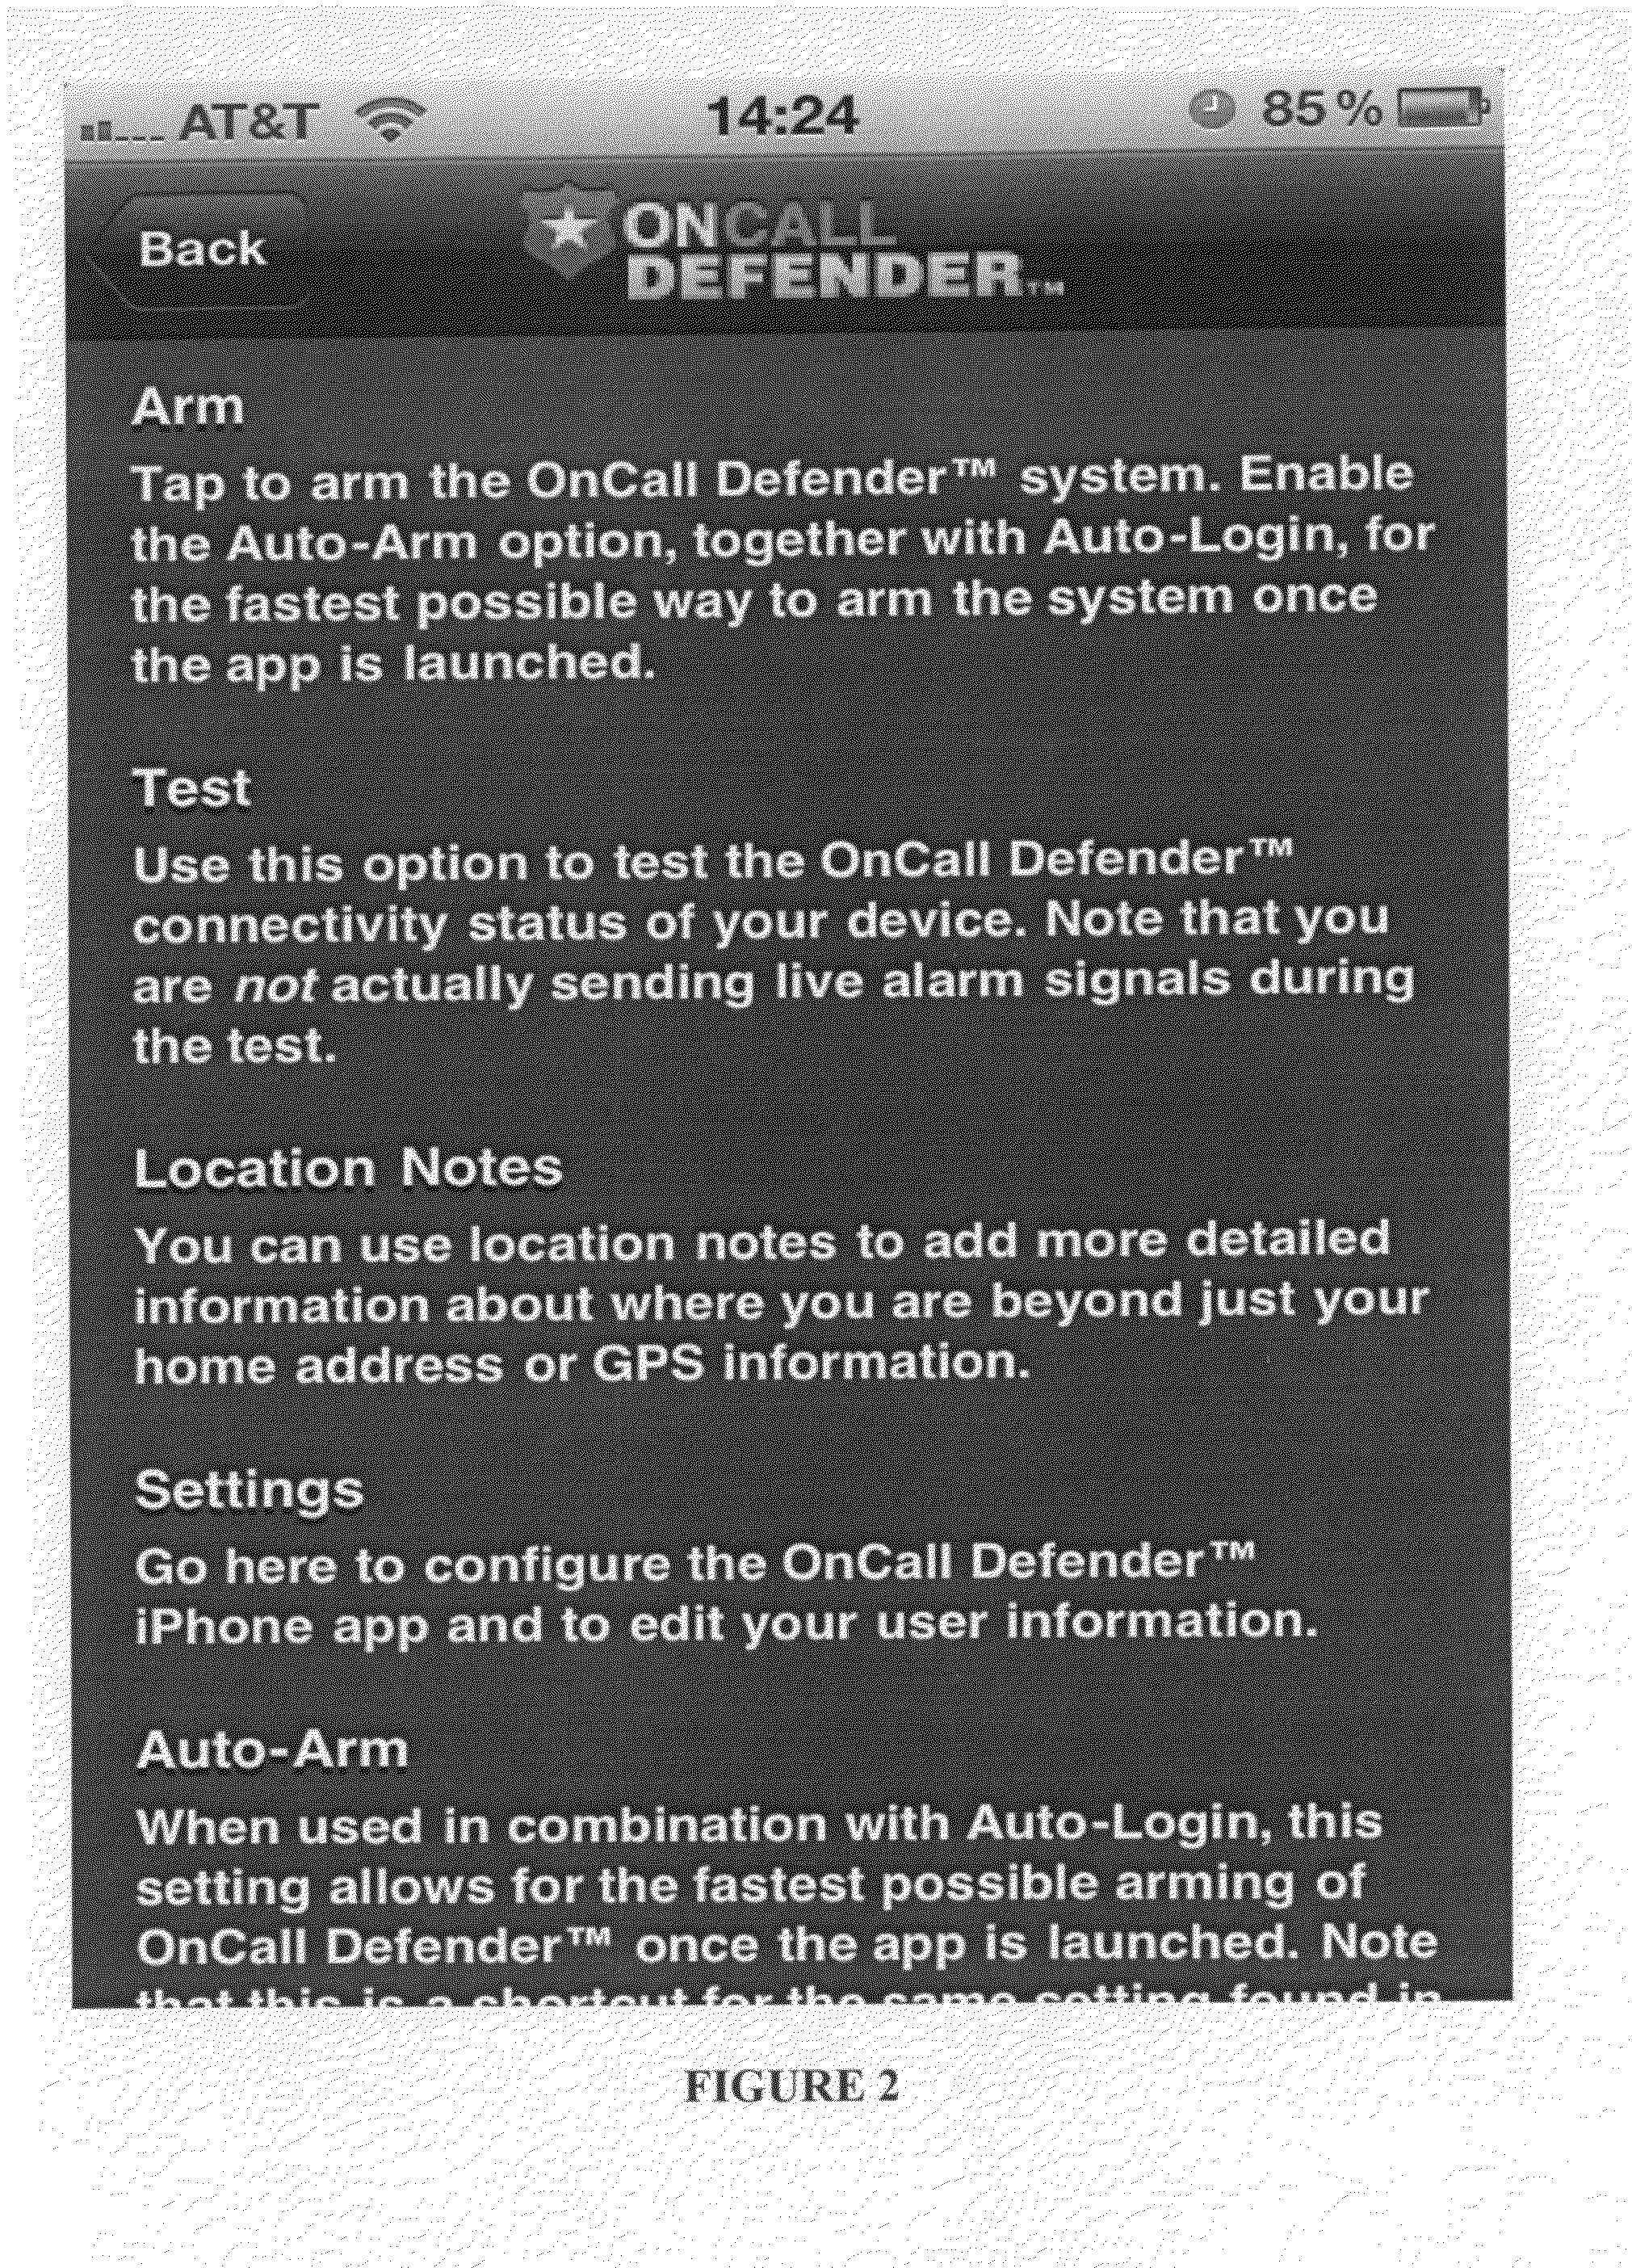 AT&T 14:24 85%
Back
ONCALL
DEFENDER™
Arm
Tap to arm the OnCall Defender™ system. Enable
the Auto-Arm option, together with Auto-Login, for
the fastest possible way to arm the system once
the app is launched.
Test
Use this option to test the OnCall Defender™
connectivity status of your device. Note that you
are not actually sending live alarm signals during
the test.
Location Notes
You can use location notes to add more detailed
information about where you are beyond just your
home address or GPS information.
Settings
Go here to configure the OnCall Defender™
iPhone app and to edit your user information.
Auto-Arm
When used in combination with Auto-Login, this
setting allows for the fastest possible arming of
OnCall Defender™ once the app is launched. Note
that this is a shortcut for the same setting found in
FIGURE 2